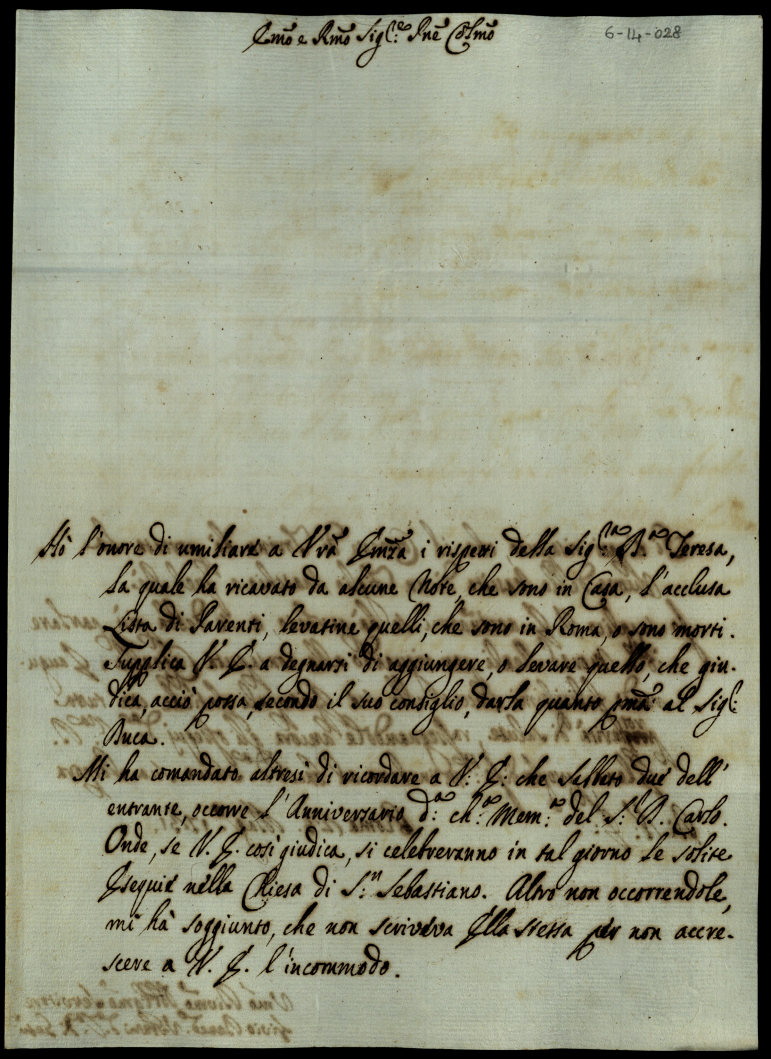 Emo e Rmo Sig.re Pne Colmo
6-14-028
Hò l'onore di umiliare a Vrã Emza i rispetti della Sig.ra D.a Teresa,
la quale ha ricavato da alcune Note, che sono in Casa, l'acclusa
Lista di Parenti, levatine quelli, che sono in Roma, o sono morti.
Supplica V. E. a degnarsi di aggiungere, o levare quello, che giu-
dica, acciò possa, secondo il suo consiglio, darla quanto pma al Sig.r
Duca.
Mi ha comandato altresì di ricordare a V: E: che Sabbato due dell'
entrante, occorre l'Anniversario d.a ch.a Mem.a del S.r D. Carlo.
Onde, se V. E. così giudica, si celebreranno in tal giorno le solite
Esequie nella Chiesa di S.n Sebastiano. Altro non occorrendole,
mi hà soggiunto, che non scriveva Ella stessa per non accre-
scere a V. E. l'incommodo.